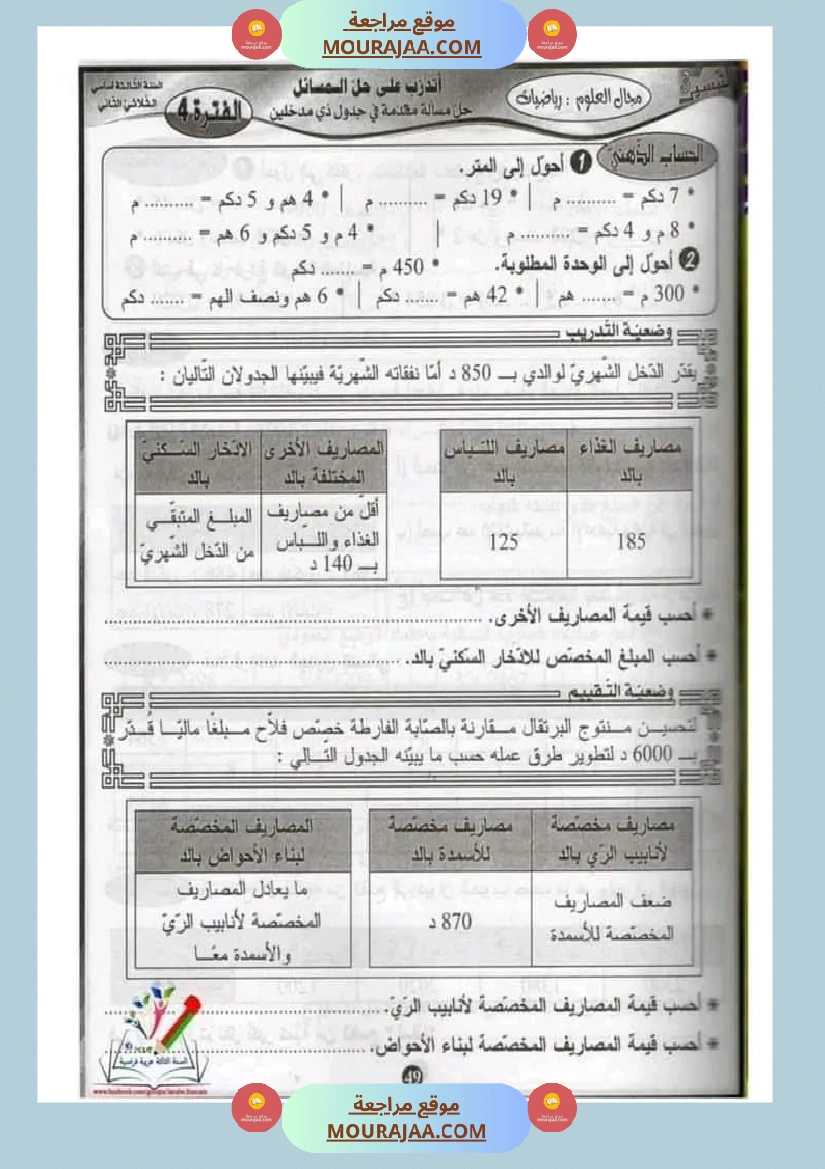 موقع مراجعة
MOURAJAA.COM
السنة الثالثة أساسي
الثلاثي الثاني
الفترة.4
أتدرّب على حلّ المسائل
حلّ مسألة مقدمة في جدول ذي مدخلين
مجال العلوم : رياضيات
الحساب الذّهنيّ
1 أحوّل إلى المتر.
* 7 دكم = ......... م | * 19 دكم = ......... م | * 4 هم و 5 دكم = ......... م
* 8 م و 4 دكم = ......... م | * 4 م و 5 دكم و 6 هم = ......... م
2 أحوّل إلى الوحدة المطلوبة. * 450 م = ....... دكم
* 300 م = ....... هم | * 42 هم = ....... دكم | * 6 هم ونصف الهم = ....... دكم
وضعيّة التّدريب
يقدّر الدّخل الشّهريّ لوالدي بــ 850 د أمّا نفقاته الشّهريّة فيبيّنها الجدولان التّاليان :
مصاريف الغذاء بالد
مصاريف اللّباس بالد
المصاريف الأخرى المختلفة بالد
الادّخار السّكنيّ بالد
185
125
أقلّ من مصاريف الغذاء واللّباس بــ 140 د
المبلغ المتبقّي من الدّخل الشّهريّ
* أحسب قيمة المصاريف الأخرى.
* أحسب المبلغ المخصّص للادّخار السكنيّ بالد.
وضعيّة التّقييم
لتحسين منتوج البرتقال مقارنة بالصّابة الفارطة خصّص فلاّح مبلغا ماليّا قُدّر
بــ 6000 د لتطوير طرق عمله حسب ما يبيّنه الجدول التّالي :
مصاريف مخصّصة لأنابيب الرّي بالد
مصاريف مخصّصة للأسمدة بالد
المصاريف المخصّصة لبناء الأحواض بالد
ضعف المصاريف المخصّصة للأسمدة
870 د
ما يعادل المصاريف المخصّصة لأنابيب الرّيّ والأسمدة معًا
* أحسب قيمة المصاريف المخصّصة لأنابيب الرّيّ.
* أحسب قيمة المصاريف المخصّصة لبناء الأحواض.
49
موقع مراجعة
MOURAJAA.COM